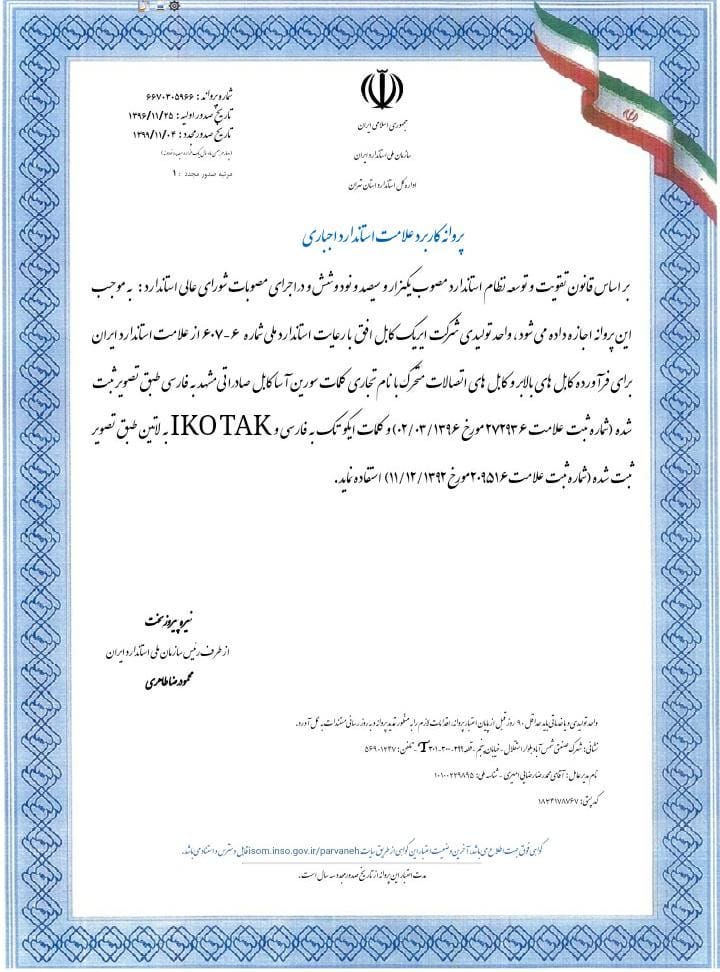 جمهوری اسلامی ایران
سازمان ملی استاندارد ایران
اداره کل استاندارد استان تهران
شماره پروانه : ۶۶۷۰۳۰۵۹۶۶
تاریخ صدور اولیه : ۱۳۹۶/۱۱/۲۵
تاریخ صدور مجدد : ۱۳۹۹/۱۱/۰۴
مرتبه صدور مجدد : ۱
پروانه کاربرد علامت استاندارد اجباری
بر اساس قانون تقویت و توسعه نظام استاندارد مصوب یکهزار و سیصد و نود و شش و در اجرای مصوبات شورای عالی استاندارد : به موجب
این پروانه اجازه داده می شود ، واحد تولیدی شرکت ایریک کابل افق با رعایت استاندارد ملی شماره ۶-۶۰۷ از علامت استاندارد ایران
برای فرآورده کابل های بالابر و کابل های اتصالات متحرک با نام تجاری کلمات سورین آسا کابل صادراتی مشهد به فارسی طبق تصویر ثبت
شده (شماره ثبت علامت ۲۷۲۹۳۶ مورخ ۰۲/۰۳/۱۳۹۶) و کلمات ایکو تک به فارسی و IKO TAK به لاتین طبق تصویر
ثبت شده (شماره ثبت علامت ۲۰۹۵۱۶ مورخ ۱۱/۱۲/۱۳۹۲) استفاده نماید.
نیره پیروز بخت
از طرف رئیس سازمان ملی استاندارد ایران
محمودرضا طاهری
واحد تولیدی و یا خدماتی باید حداقل ۹۰ روز قبل از پایان اعتبار پروانه، اقدامات لازم را به منظور تمدید پروانه و به روز رسانی مستندات به عمل آورد.
نشانی : شهرک صنعتی شمس آباد بلوار استقلال - خیابان پنجم - قطعه T۳۰۱-۳۰۰-۲۹۹ - تلفن : ۵۶۹۰۱۲۴۷
نام مدیر عامل : آقای محمدرضا رضایی امیری - شناسه ملی : ۱۰۱۰۰۲۲۹۸۹۵
کد پستی : ۱۸۳۴۱۷۸۷۶۷
گواهی فوق جهت اطلاع می باشد، آخرین وضعیت اعتبار این گواهی از طریق سایت isom.inso.gov.ir/parvaneh قابل دسترس و استناد می باشد.
مدت اعتبار این پروانه از تاریخ صدور مجدد سه سال است.